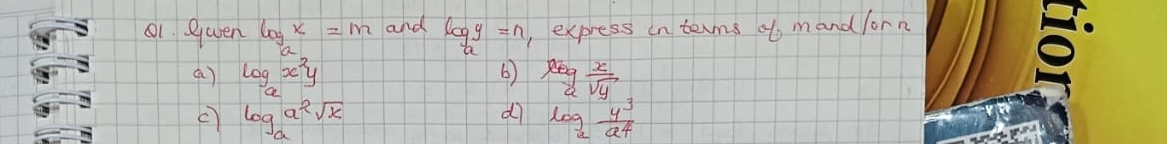 Q1. Given logₐ x = m and logₐ y = n, express in terms of m and/or n
a) logₐ x²y b) logₐ x/√y
c) logₐ a²√x d) logₐ y³/a⁴
tion